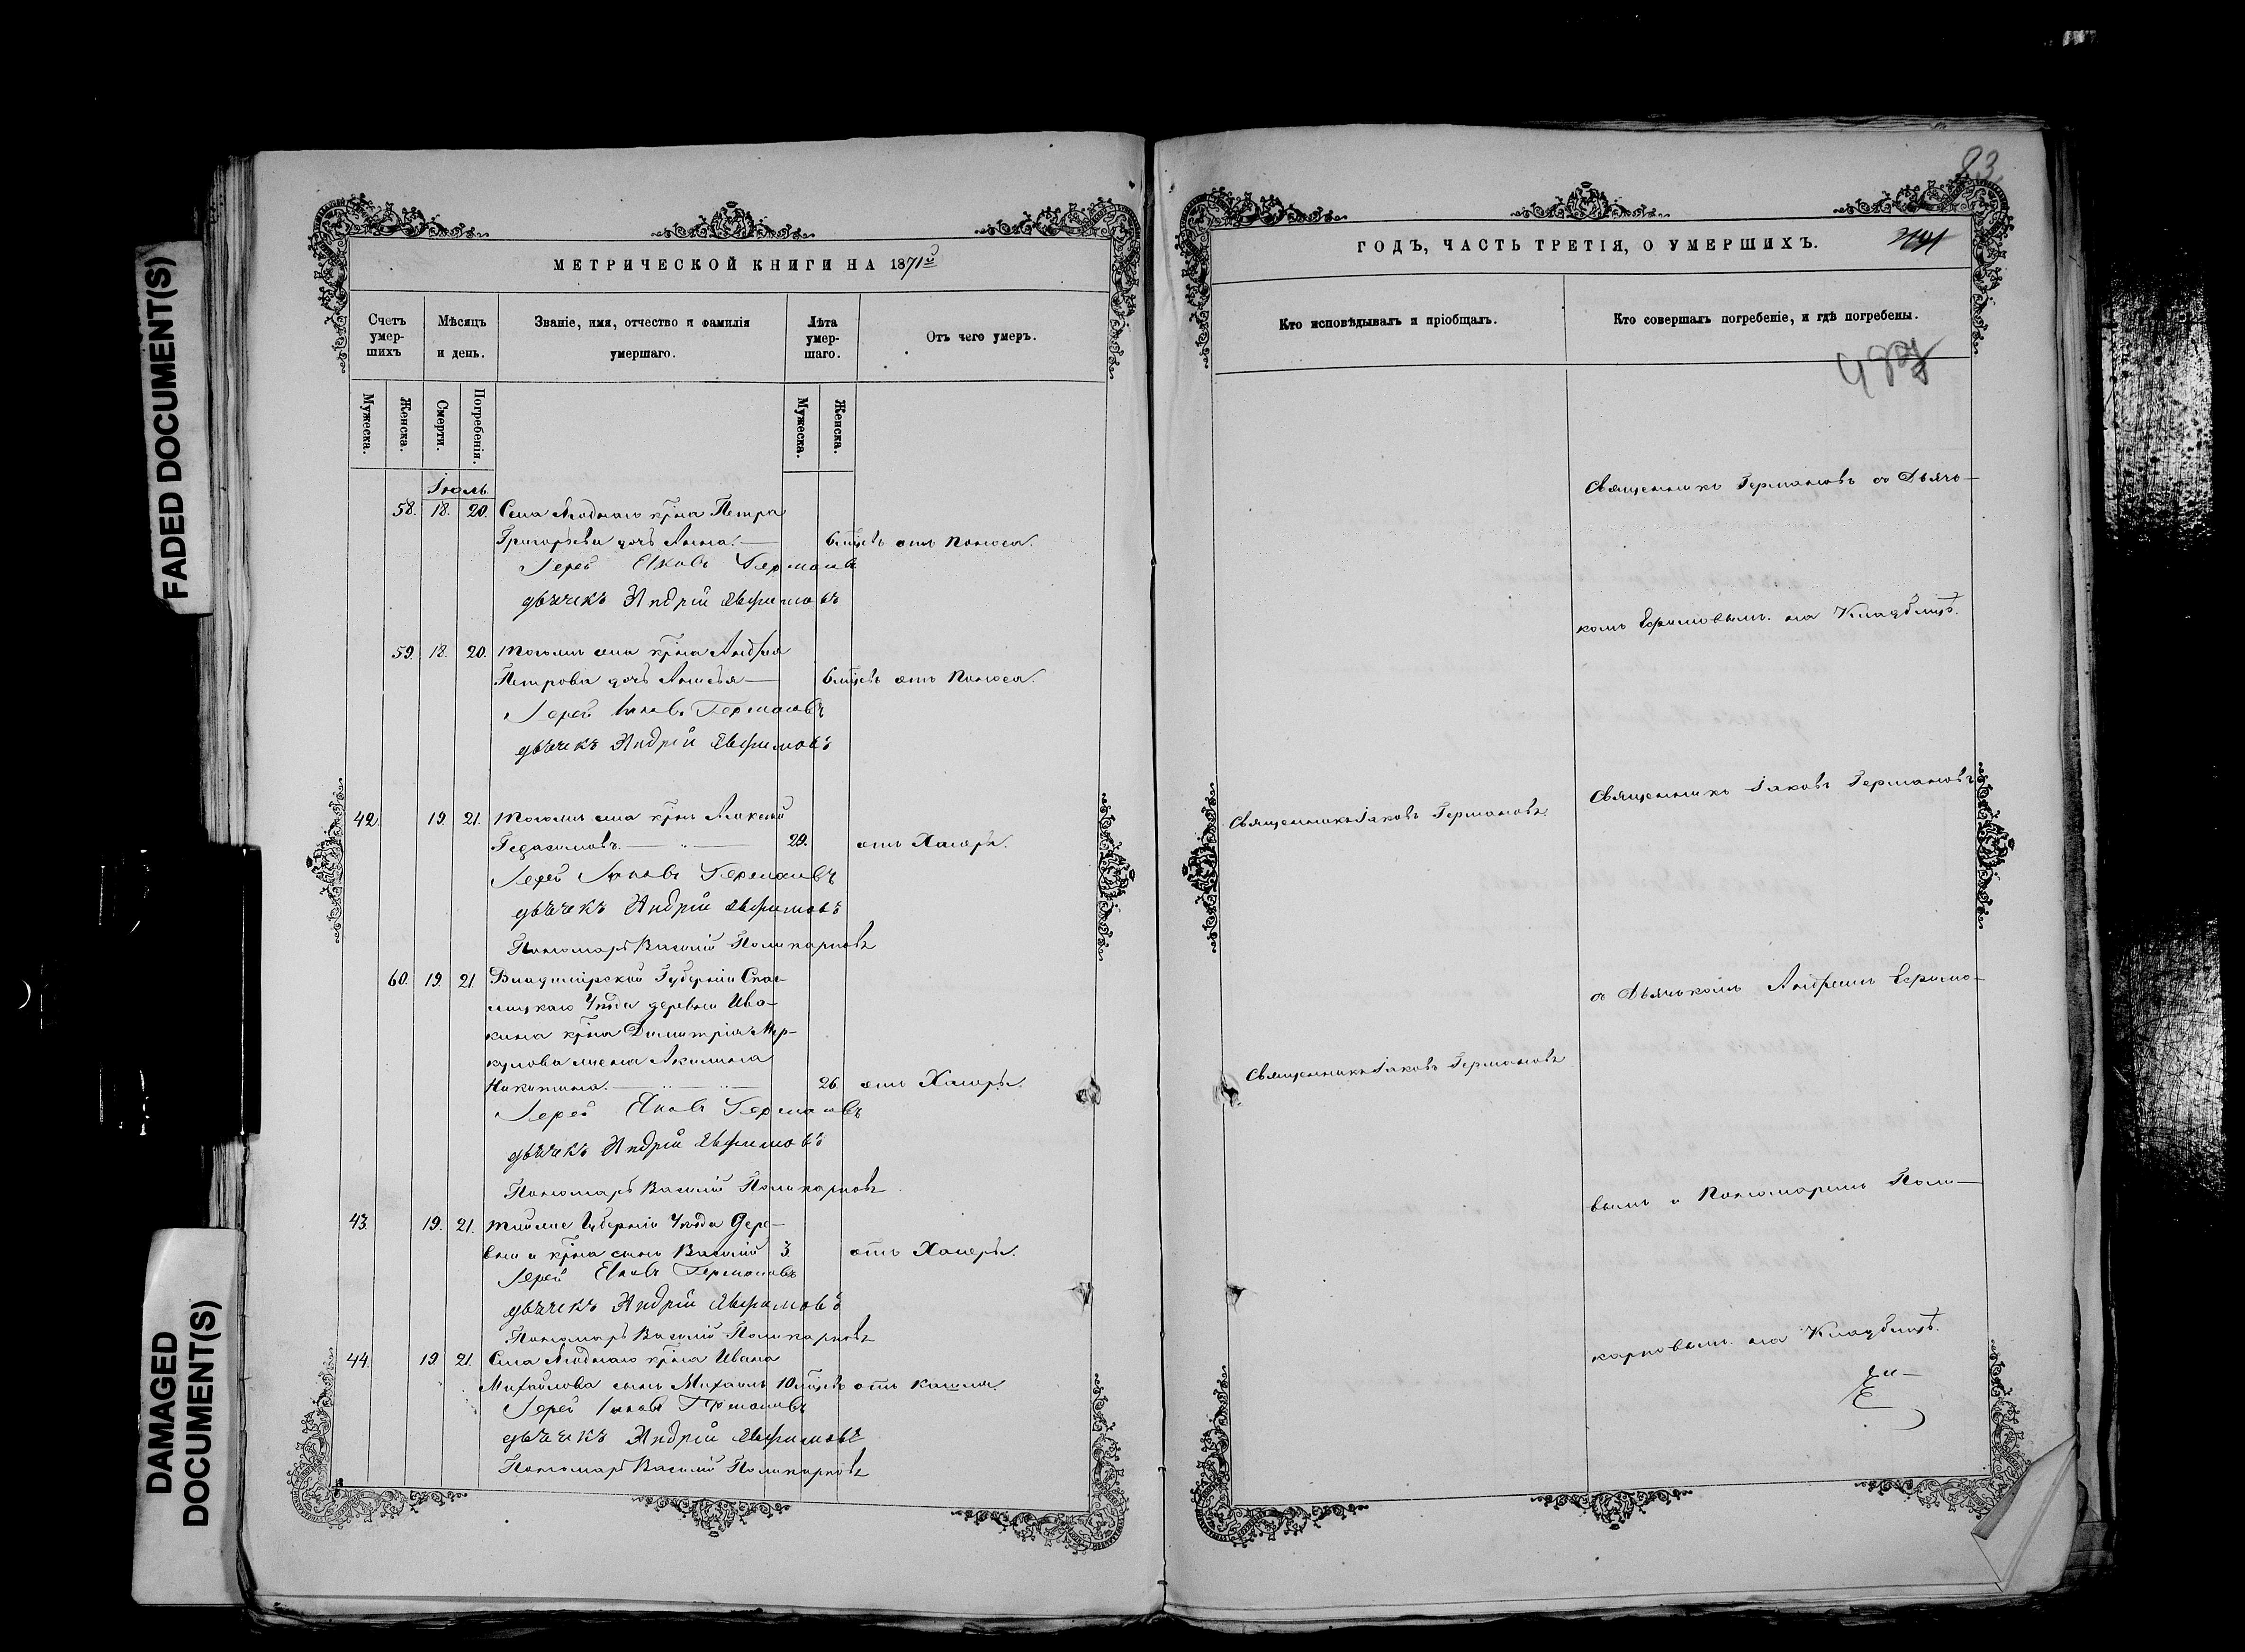 FADED DOCUMENT(S)
DAMAGED
DOCUMENT(S)
МЕТРИЧЕСКОЙ КНИГИ НА 1871й
Счетъ умер-шихъ
Мѣсяцъ и день.
Званіе, имя, отчество и фамилія умершаго.
Лѣта умер-шаго.
Отъ чего умеръ.
Мужеска.
Женска.
Смерти.
Погребенія.
Мужеска.
Женска.
Іюль.
58. 18. 20. Села кр̃на Петра
Григорьева дочь Анна. 6 отъ Поноса.
Іерей Іаковъ Германовъ
дьячекъ Андрій Евфимовъ
59. 18. 20. Тогоже села кр̃на Андрея
Петрова дочь 6 отъ Поноса.
Іерей Іаковъ Германовъ
дьячекъ Андрій Евфимовъ
42. 19. 21. Тогоже села кр̃нъ Алексѣй
Герасимовъ. 29. отъ Холеры.
Іерей Іаковъ Германовъ
дьячекъ Андрій Евфимовъ
Пономарь Василій Поликарповъ
60. 19. 21. Владимірской Губерніи Спас-
скаго Уѣзда деревни Ива-
кина кр̃на Димитрія Мер-
кулова жена Акилина
Никитина. 26. отъ Холеры.
Іерей Іаковъ Германовъ
дьячекъ Андрій Евфимовъ
Пономарь Василій Поликарповъ
43. 19. 21. тойже Губерніи Уѣзда Дере-
вни и кр̃на сынъ Василій 3. отъ Холеры.
Іерей Іаковъ Германовъ
дьячекъ Андрій Евфимовъ
Пономарь Василій Поликарповъ
44. 19. 21. Села кр̃на Ивана
Михайлова сынъ Михаилъ 10 отъ кашля.
Іерей Іаковъ Германовъ
дьячекъ Андрій Евфимовъ
Пономарь Василій Поликарповъ
83.
ГОДЪ, ЧАСТЬ ТРЕТІЯ, О УМЕРШИХЪ.
Кто исповѣдывалъ и пріобщалъ.
Кто совершалъ погребеніе, и гдѣ погребены.
Священникъ Германовъ съ Дьячь-
комъ Ефимовымъ. на Кладбищѣ.
Священникъ Іаковъ Германовъ.
Священникъ Іаковъ Германовъ
съ Дьячькомъ Андреемъ Ефимо-
Священникъ Іаковъ Германовъ
вымъ и Пономаремъ Поли-
карповымъ. на Кладбищѣ.